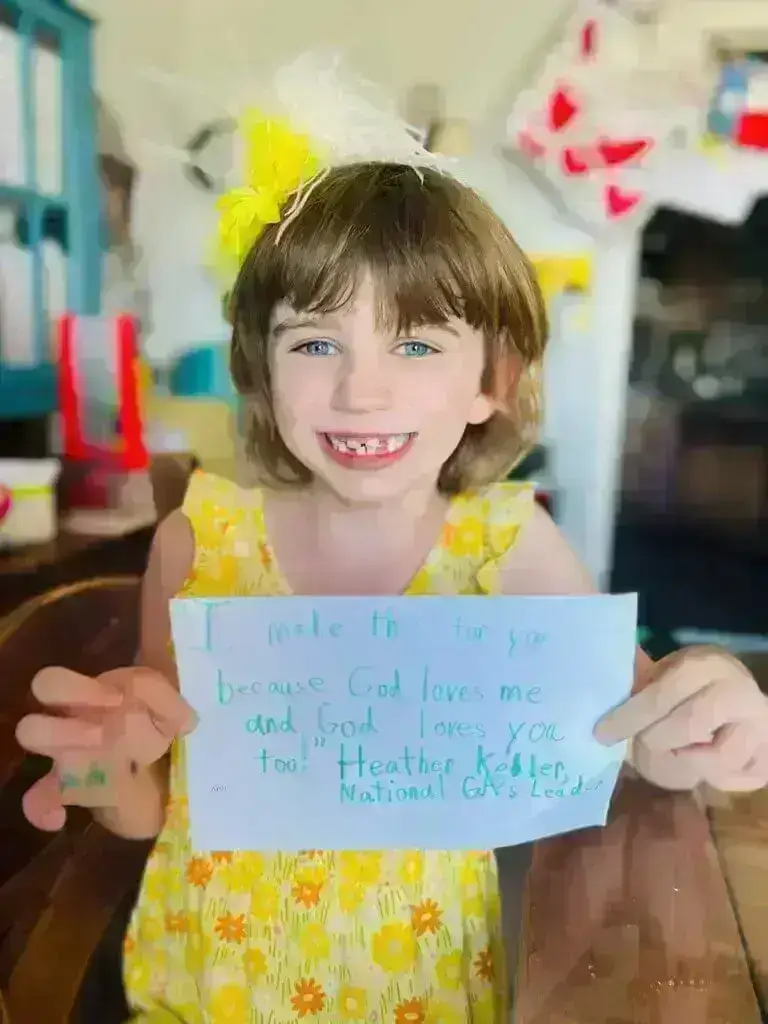 I made this for you
because God loves me
and God loves you
too!" Heather Keller,
National GA's Leader